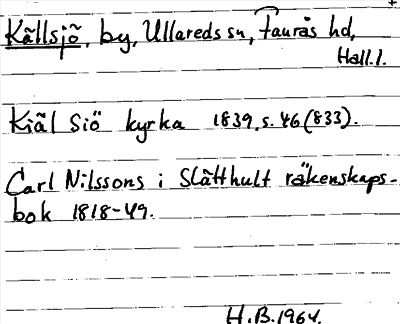 Källsjö, by, Ullareds sn, Faurås hd,
Hall.l.
Kiäl Siö kyrka 1839, s. 46 (833).
Carl Nilssons i Slätthult räkenskaps-
bok 1818-49.
H.B. 1964.